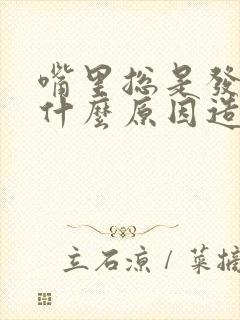 嘴里总是發
什麼原因造
立石凉 / 菜摘